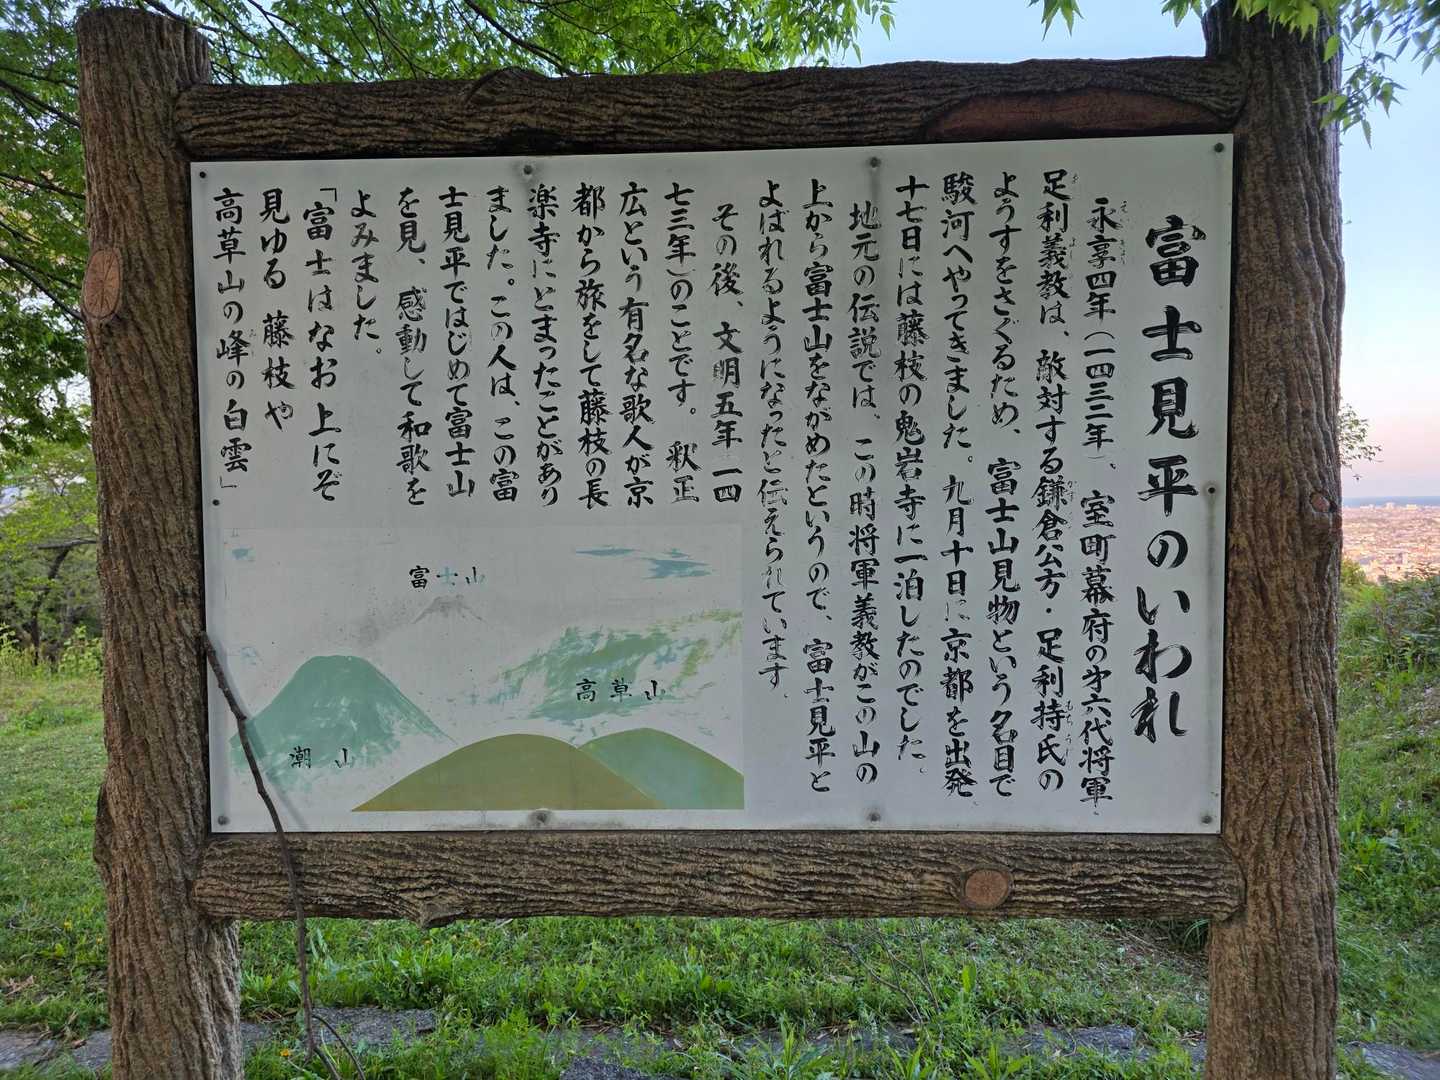 富士見平のいわれ
永享四年（一四三二年）、室町幕府の第六代将軍
足利義教は、敵対する鎌倉公方・足利持氏の
ようすをさぐるため、富士山見物という名目で
駿河へやってきました。九月十日に京都を出発
十七日には藤枝の鬼岩寺に一泊したのでした。
地元の伝説では、この時将軍義教がこの山の
上から富士山をながめたというので、富士見平と
よばれるようになったと伝えられています。
その後、文明五年（一四
七三年）のことです。釈正
広という有名な歌人が京
都から旅をして藤枝の長
楽寺にとまったことがあり
ました。この人は、この富
士見平ではじめて富士山
を見、感動して和歌を
よみました。
「富士はなお上にぞ
見ゆる 藤枝や
高草山の峰の白雲」
富士山
高草山
潮山